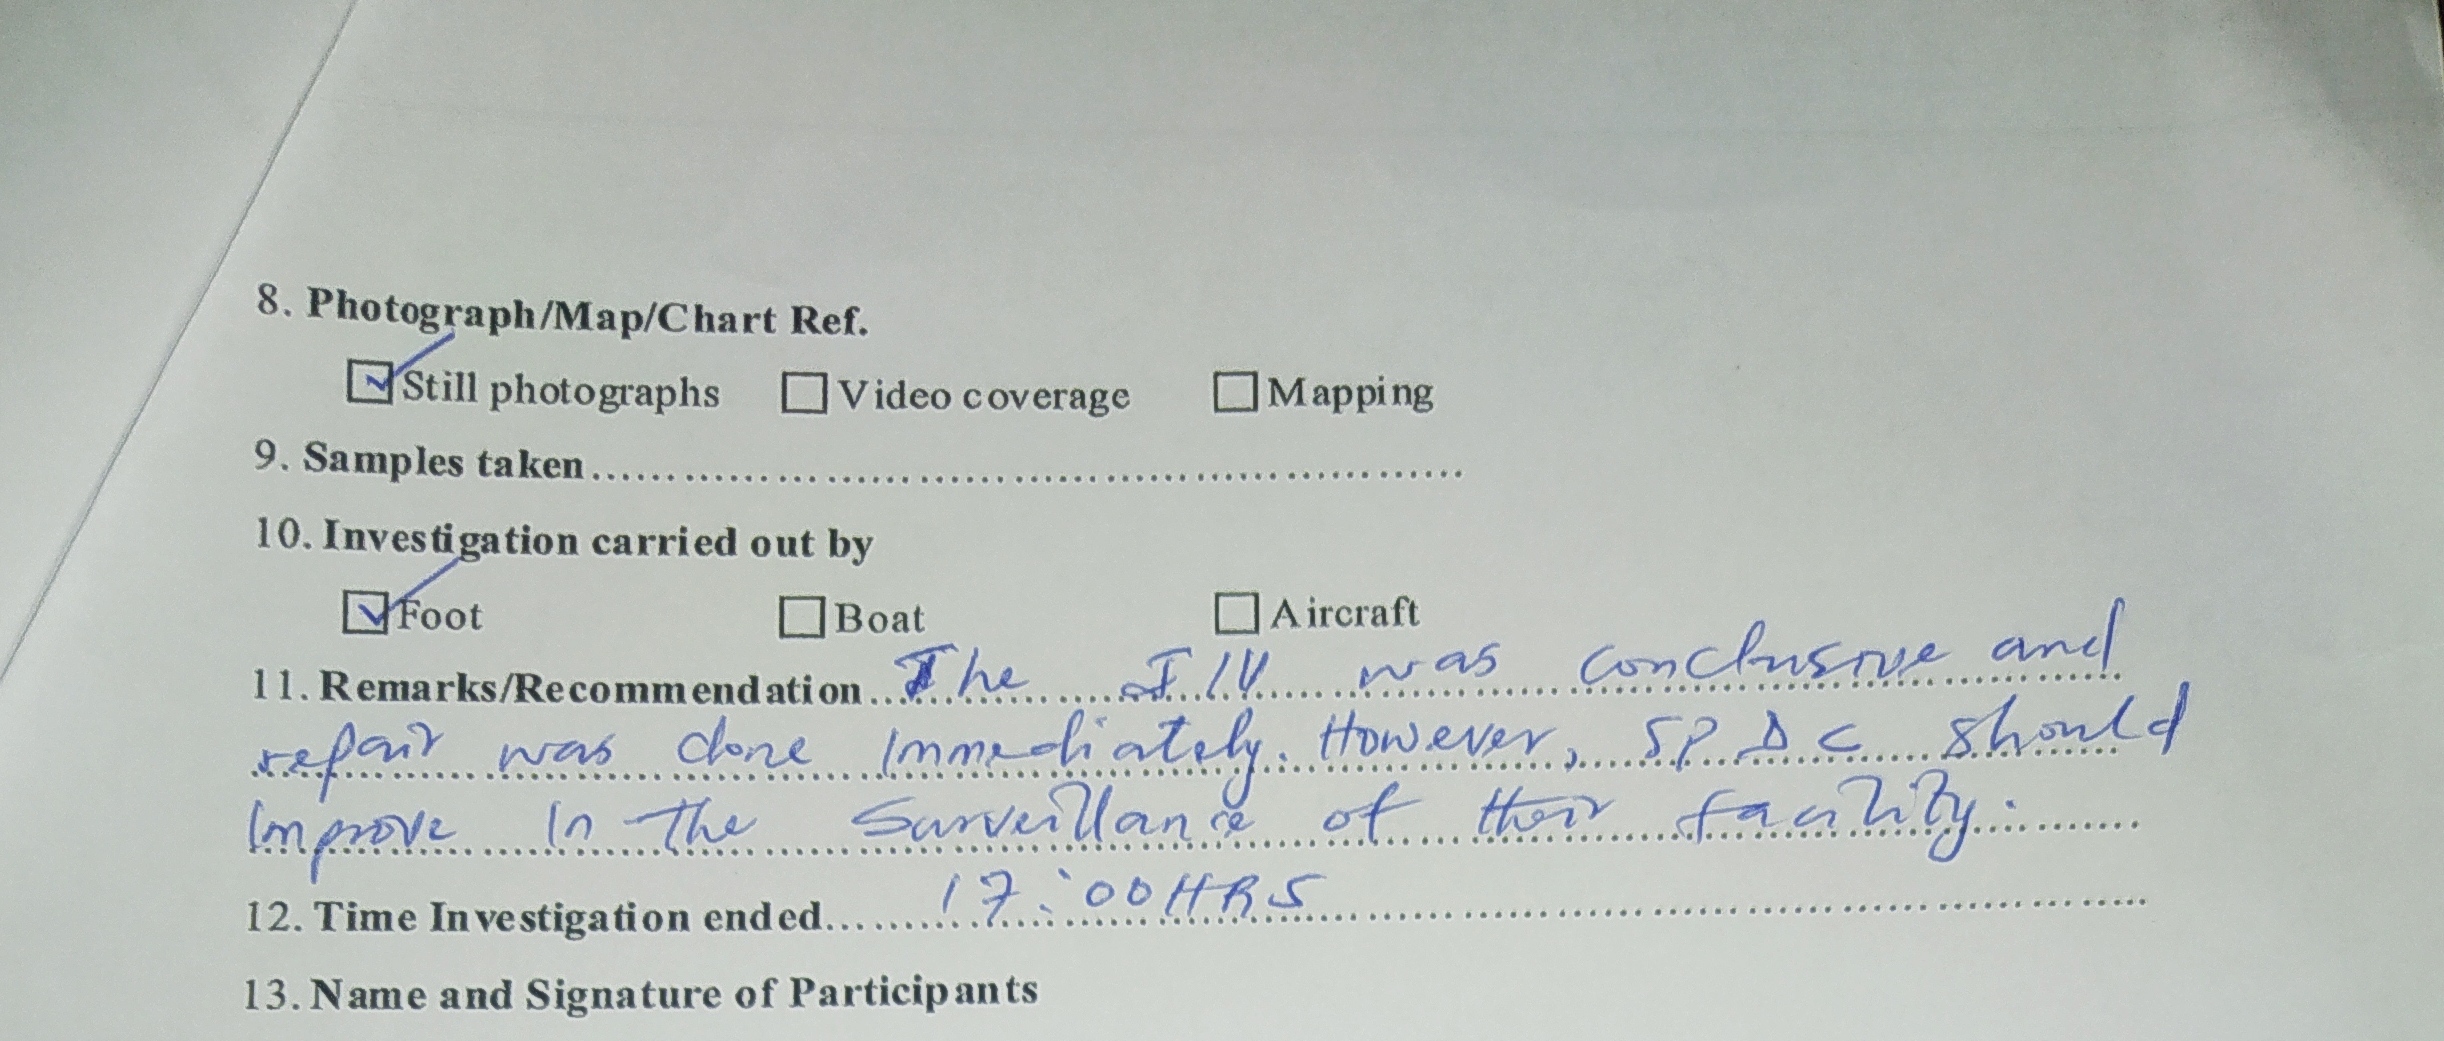 8. Photograph/Map/Chart Ref.
☑ Still photographs ☐ Video coverage ☐ Mapping
9. Samples taken....................................................
10. Investigation carried out by
☑ Foot ☐ Boat ☐ Aircraft
11. Remarks/Recommendation.. The JIV was conclusive and
repair was done immediately. However, SPDC should
improve in the surveillance of their facility.
12. Time Investigation ended.... 17:00HRS
13. Name and Signature of Participants